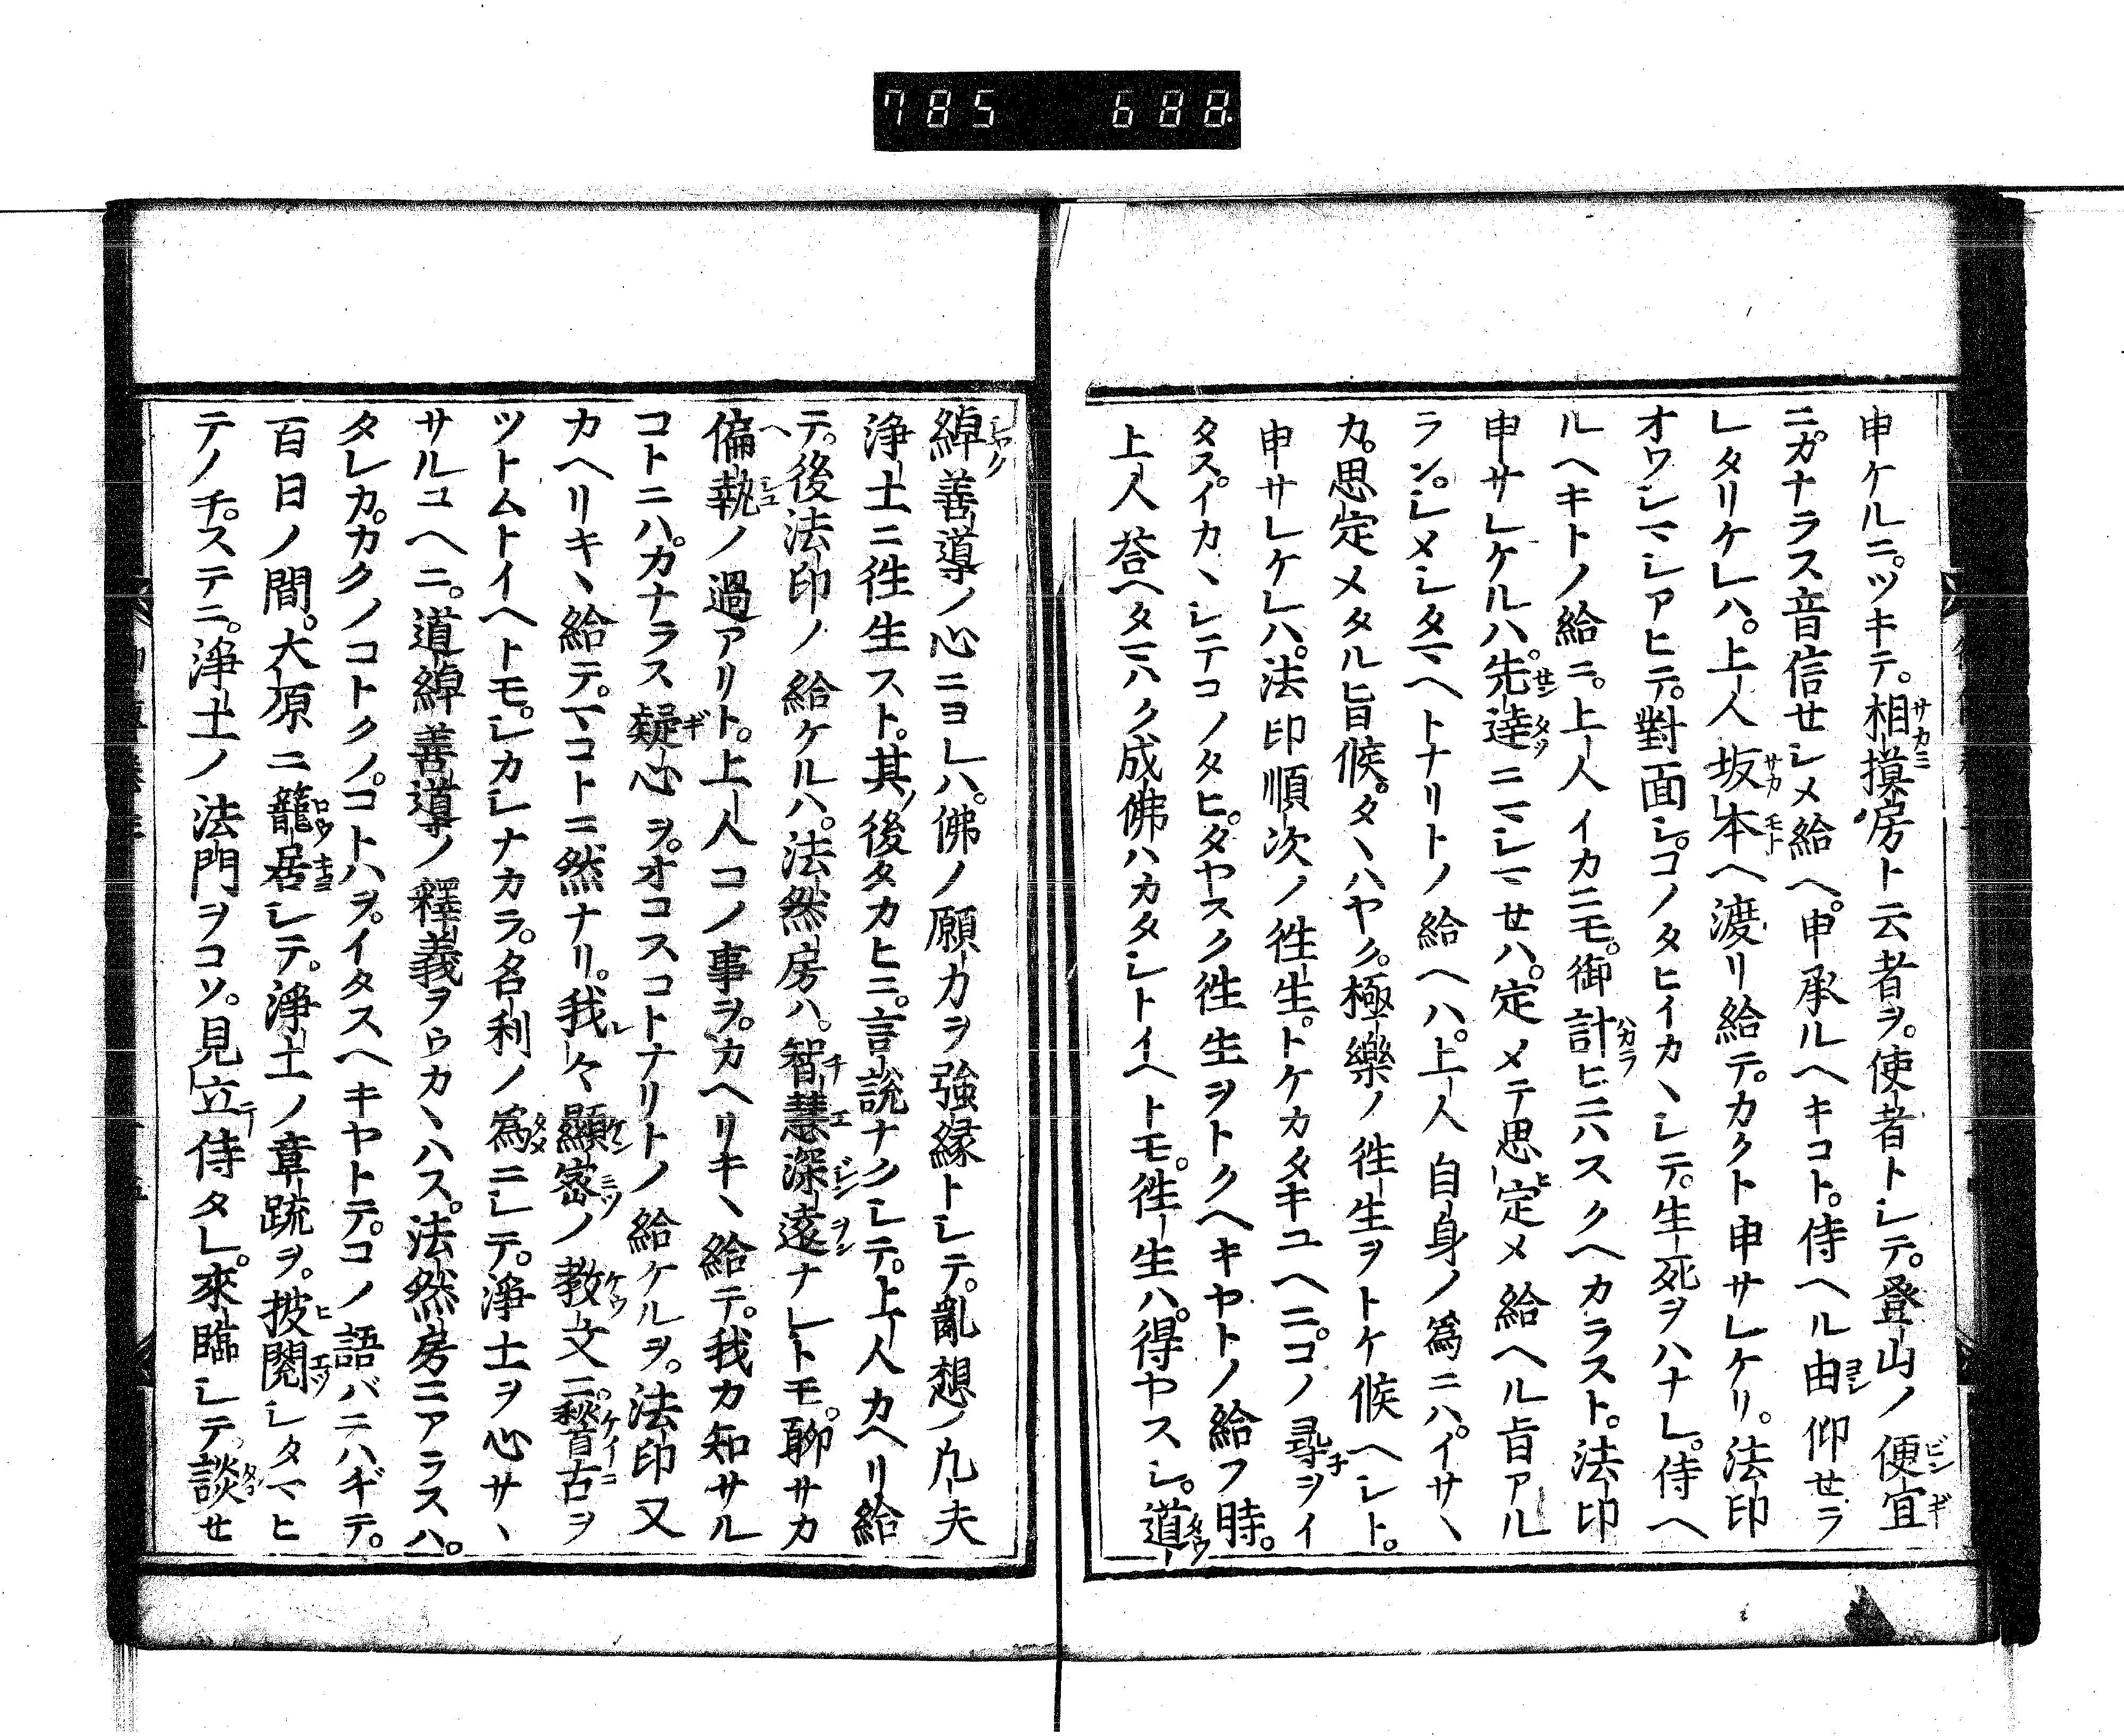 785 688
申ケルニ。ツキテ。相摸房ト云者ヲ。使者トシテ。登山ノ便宜
ニ。カナラス音信せシメ給ヘ。申承ルヘキコト。侍ヘル由仰せラ
レタリケレハ。上人坂本ヘ渡リ給テ。カクト申サレケリ。法印
オワシマシアヒテ。對面シ。コノタヒイカヽシテ。生死ヲハナレ。侍ヘ
ルヘキトノ給ニ。上人イカニモ。御計ヒニハスクヘカラスト。法印
申サレケルハ。先達ニマシマせハ。定メテ思定メ給ヘル旨アル
ラン。シメシタマヘトナリトノ給ヘハ。上人自身ノ爲ニハ。イサヽ
カ。思定メタル旨候。タヽハヤク。極樂ノ徃生ヲトケ候ヘシト。
申サレケレハ。法印順次ノ徃生。トケカタキユヘニ。コノ尋ヲイ
タス。イカヽシテコノタヒ。タヤスク徃生ヲトクヘキヤトノ給フ時。
上人荅ヘタマハク成佛ハカタシトイヘトモ。徃生ハ。得ヤスシ。道
綽善導ノ心ニヨレハ。佛ノ願力ヲ強縁トシテ。亂想ノ凡夫
淨土ニ徃生スト。其後タカヒニ。言説ナクシテ。上人カヘリ給
テ。後法印ノ給ケルハ。法然房ハ。智慧深遠ナレトモ。聊サカ
偏執ノ過アリト。上人コノ事ヲ。カヘリキヽ給テ。我カ知サル
コトニハ。カナラス疑心ヲ。オコスコトナリトノ給ケルヲ。法印又
カヘリキヽ給テ。マコトニ然ナリ。我レ々顯密ノ教文ニ。稽古ヲ
ツトムトイヘトモ。シカシナカラ。名利ノ爲ニシテ。淨土ヲ心サヽ
サルユヘニ。道綽善導ノ釋義ヲウカヽハス。法然房ニアラスハ。
タレカ。カクノコトクノ。コトハヲ。イタスヘキヤトテ。コノ語バニハギテ。
百日ノ間。大原ニ籠居シテ。淨土ノ章疏ヲ。披閲シタマヒ
テノチ。ステニ。淨土ノ法門ヲコソ。見立侍タレ。來臨シテ。談せ